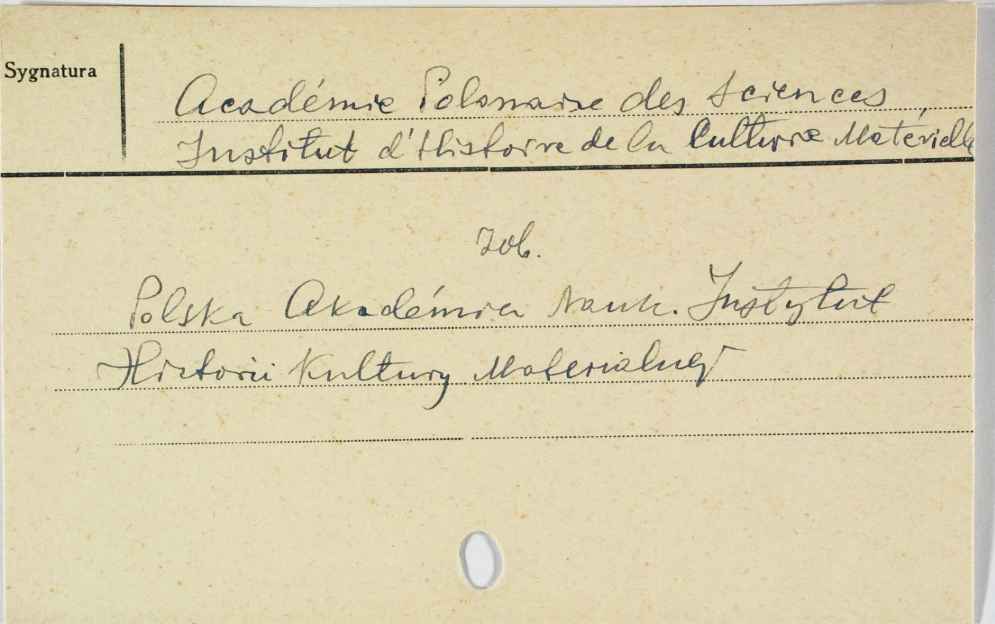 Sygnatura
Académie Polonaise des Sciences,
Institut d'Histoire de la Culture Matérielle
Zob.
Polska Akadémia Nauk. Instytut
Historii Kultury Materialnej